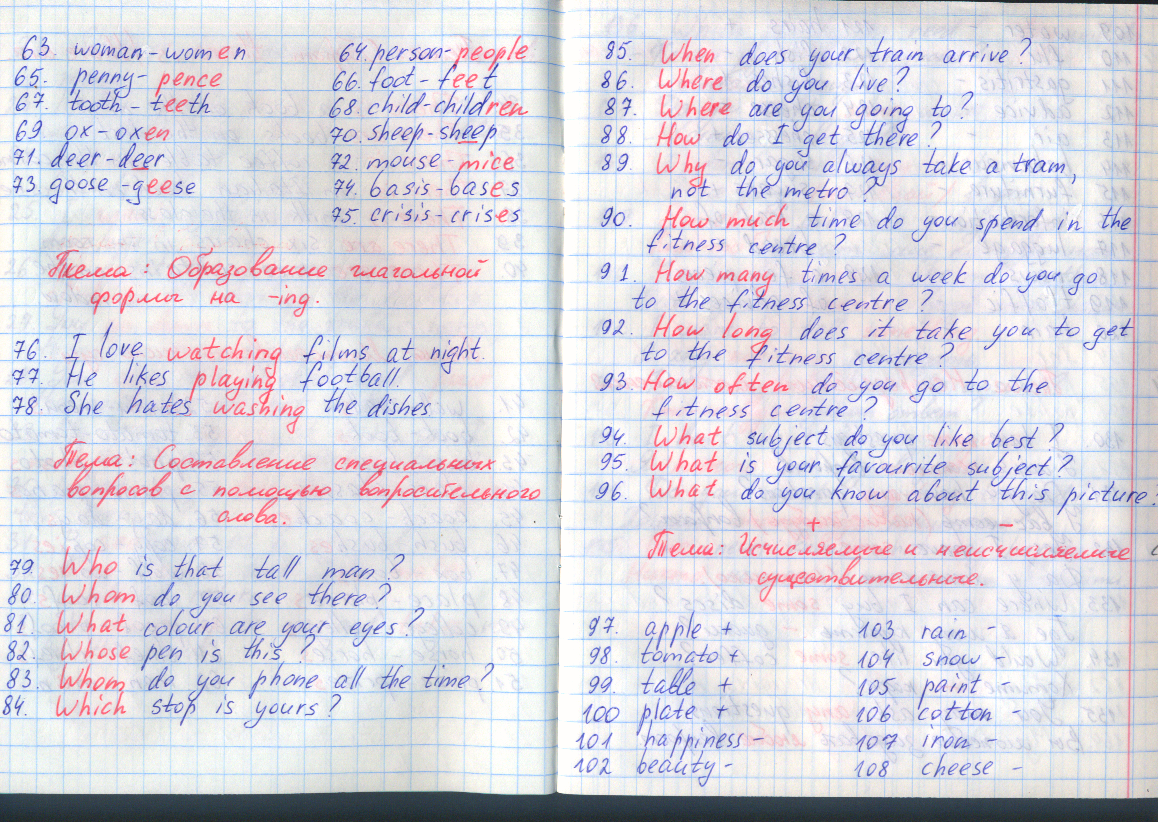 63. woman-women 64. person-people
65. penny-pence 66. foot-feet
67. tooth-teeth 68. child-children
69 ox-oxen 70. sheep-sheep
71. deer-deer 72. mouse-mice
73. goose-geese 74. basis-bases
75. crisis-crises
Тема: Образование глагольной
формы на -ing.
76. I love watching films at night.
77. He likes playing football.
78. She hates washing the dishes
Тема: Составление специальных
вопросов с помощью вопросительного
слова.
79. Who is that tall man?
80. Whom do you see there?
81. What colour are your eyes?
82. Whose pen is this?
83. Whom do you phone all the time?
84. Which stop is yours?
85. When does your train arrive?
86. Where do you live?
87. Where are you going to?
88. How do I get there?
89. Why do you always take a tram,
not the metro?
90. How much time do you spend in the
fitness centre?
91. How many times a week do you go
to the fitness centre?
92. How long does it take you to get
to the fitness centre?
93. How often do you go to the
fitness centre?
94. What subject do you like best?
95. What is your favourite subject?
96. What do you know about this picture?
+ -
Тема: Исчисляемые и неисчисляемые
существительные.
97. apple + 103 rain -
98. tomato + 104 snow -
99. table + 105 paint -
100 plate + 106 cotton -
101 happiness - 107 iron -
102 beauty - 108 cheese -